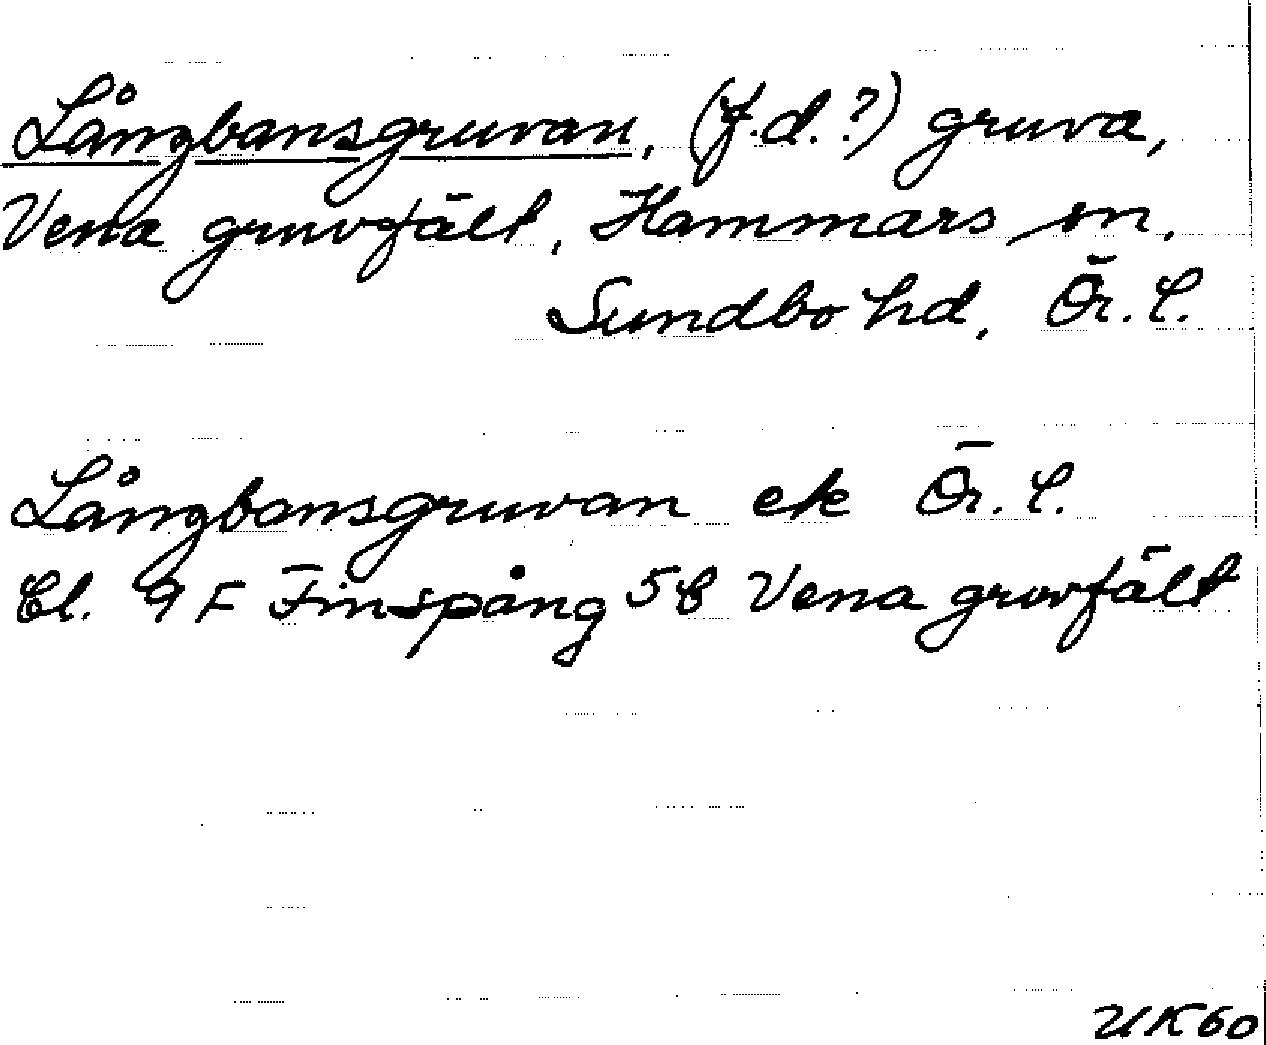 Långbansgruvan, (f.d.?) gruva,
Vena gruvfält, Hammars sn,
Sundbo hd, Ör. l.
Långbansgruvan ek Ör. l.
Bl. 9 F Finspång 5 c Vena gruvfält
UK60